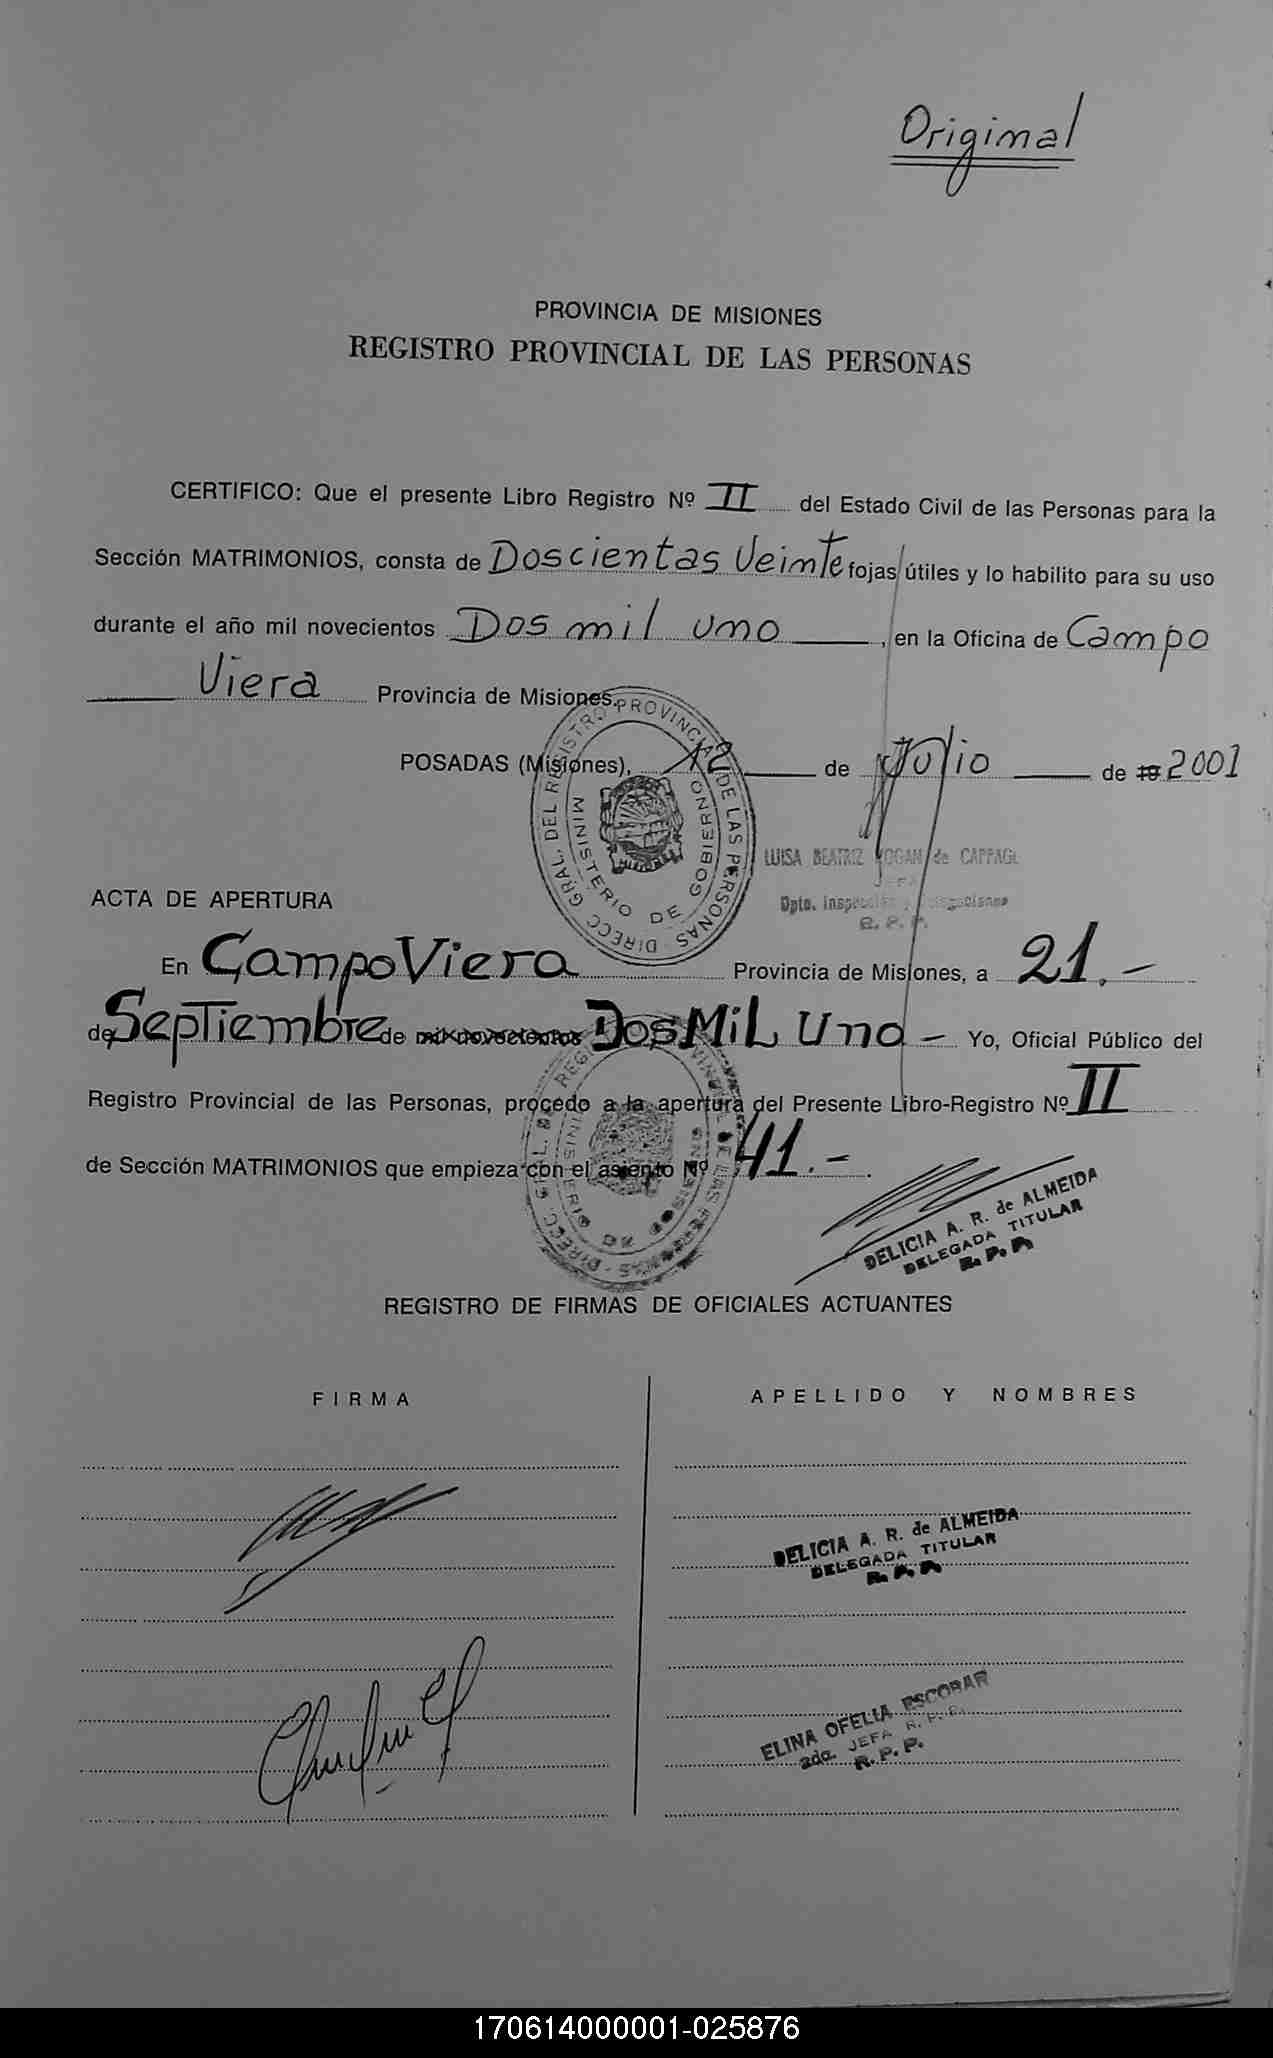 Original
PROVINCIA DE MISIONES
REGISTRO PROVINCIAL DE LAS PERSONAS
CERTIFICO: Que el presente Libro Registro Nº II del Estado Civil de las Personas para la
Sección MATRIMONIOS, consta de Doscientas Veinte fojas útiles y lo habilito para su uso
durante el año mil novecientos Dos mil uno, en la Oficina de Campo
Viera Provincia de Misiones.
POSADAS (Misiones), 12 de Julio de 19 2001
DIRECC. GRAL. DEL REGISTRO PROVINCIAL DE LAS PERSONAS
MINISTERIO DE GOBIERNO
LUISA BEATRIZ de
Dpto. Inspección
R. P. P.
ACTA DE APERTURA
En Campo Viera Provincia de Misiones, a 21.-
de Septiembre de mil novecientos Dos Mil Uno - Yo, Oficial Público del
Registro Provincial de las Personas, procedo a la apertura del Presente Libro-Registro Nº II
de Sección MATRIMONIOS que empieza con el asiento Nº 41.-.
DELICIA A. R. de ALMEIDA
DELEGADA TITULAR
R. P. P.
REGISTRO DE FIRMAS DE OFICIALES ACTUANTES
FIRMA APELLIDO Y NOMBRES
DELICIA A. R. de ALMEIDA
DELEGADA TITULAR
R. P. P.
ELINA OFELIA ESCOBAR
2da. JEFA R. P. P.
R. P. P.
170614000001-025876